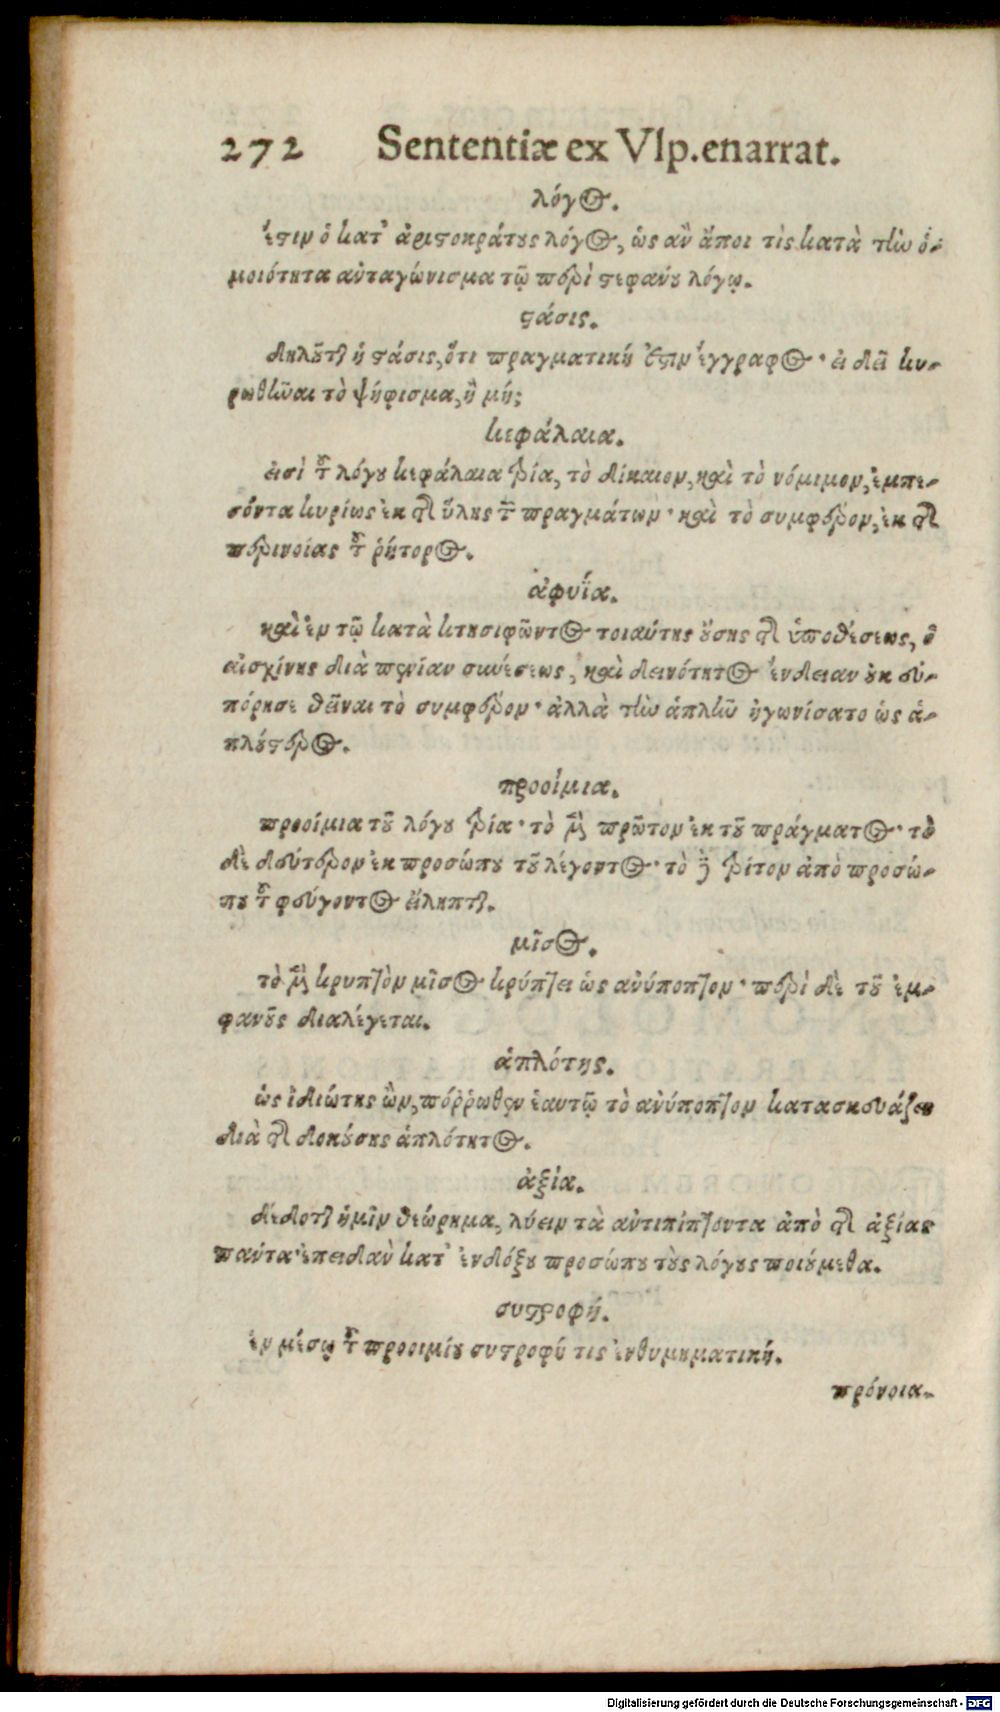 272 Sententiæ ex Vlp. enarrat.
λόγος.
ἔστιν ὁ κατ᾽ ἀριστοκράτους λόγος, ὡς ἂν ἄποι τὶς κατὰ τὴν ὁ-
μοιότητα ἀνταγώνισμα τῷ περὶ στεφάνου λόγῳ.
στάσις.
δηλοῦται ἡ στάσις, ὅτι πραγματική ἐστιν ἔγγραφος· εἰ δεῖ κυ-
ρωθῆναι τὸ ψήφισμα, ἢ μή;
κεφάλαια.
εἰσὶ τοῦ λόγου κεφάλαια τρία, τὸ δίκαιον, καὶ τὸ νόμιμον, ἐμπε-
σόντα κυρίως ἐκ τῆς ὕλης τῶν πραγμάτων· καὶ τὸ συμφέρον, ἐκ τῆς
περινοίας τοῦ ῥήτορος.
ἀφυΐα.
καὶ ἐν τῷ κατὰ κτησιφῶντος τοιαύτης οὔσης τῆς ὑποθέσεως, ὁ
αἰσχίνης διὰ πενίαν συνέσεως, καὶ δεινότητος ἔνδειαν οὐκ εὐ-
πόρησε θεῖναι τὸ συμφέρον· ἀλλὰ τὴν ἁπλῆν ἠγωνίσατο ὡς ἁ-
πλούστερος.
προοίμια.
προοίμια τοῦ λόγου τρία· τὸ μὲν πρῶτον ἐκ τοῦ πράγματος· τὸ
δὲ δεύτερον ἐκ προσώπου τοῦ λέγοντος· τὸ δὲ τρίτον ἀπὸ προσώ-
που τοῦ φεύγοντος εἴληπται.
μῖσος.
τὸ μὲν κρυπτὸν μῖσος κρύπτει ὡς ἀνύποπτον· περὶ δὲ τοῦ ἐμ-
φανοῦς διαλέγεται.
ἁπλότης.
ὡς ἰδιώτης ὢν, πόῤῥωθεν ἑαυτῷ τὸ ἀνύποπτον κατασκευάζει
διὰ τῆς δοκούσης ἁπλότητος.
ἀξία.
δέδοται ἡμῖν θεώρημα, λύειν τὰ ἀντιπίπτοντα ἀπὸ τῆς ἀξίας
πάντα· ἐπειδὰν κατ᾽ ἐνδόξου προσώπου τοὺς λόγους ποιούμεθα.
συστροφή.
ἐν μέσῳ τοῦ προοιμίου συστροφή τις ἐνθυμηματική.
πρόνοια.
Digitalisierung gefördert durch die Deutsche Forschungsgemeinschaft - DFG